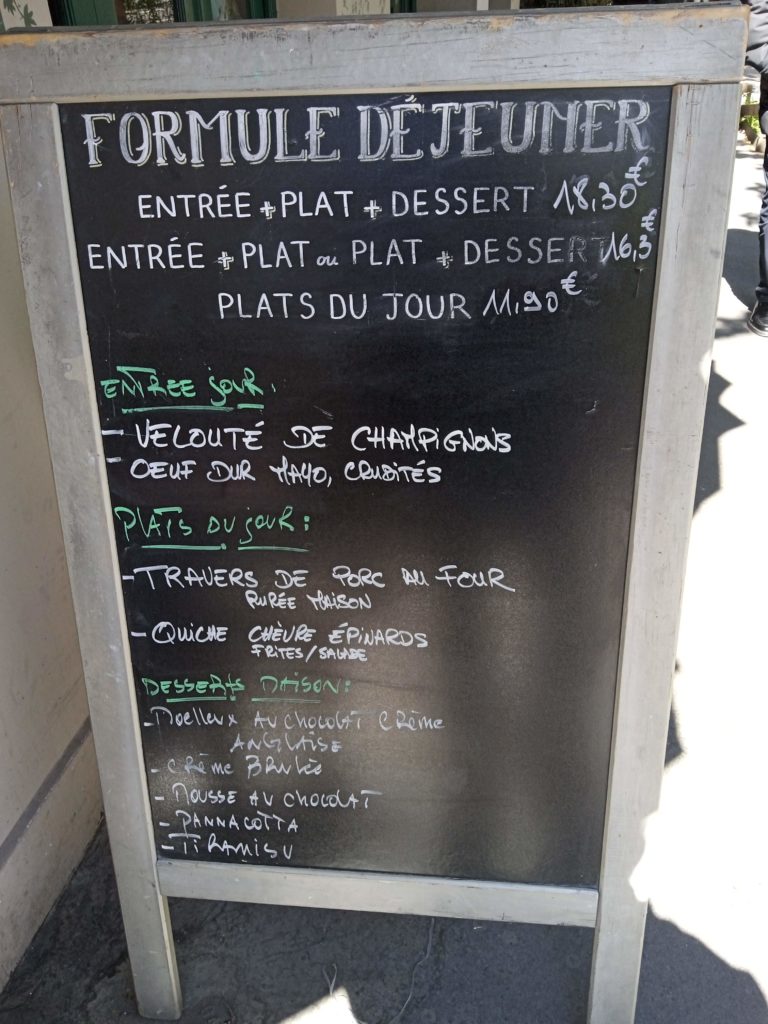 FORMULE DÉJEUNER
ENTRÉE + PLAT + DESSERT 18,30€
ENTRÉE + PLAT ou PLAT + DESSERT 16,3€
PLATS DU JOUR 11.90€
ENTREE JOUR.
- VELOUTÉ DE CHAMPIGNONS
- OEUF DUR MAYO, CRUDITÉS
PLATS DU JOUR :
- TRAVERS DE PORC AU FOUR
PURÉE MAISON
- QUICHE CHÈVRE ÉPINARDS
FRITES/SALADE
DESSERTS MAISON:
- MOELLEUX AU CHOCOLAT CRÈME
ANGLAISE
- CRÈME BRULÉE
- MOUSSE AU CHOCOLAT
- PANNACOTTA
- TIRAMISU